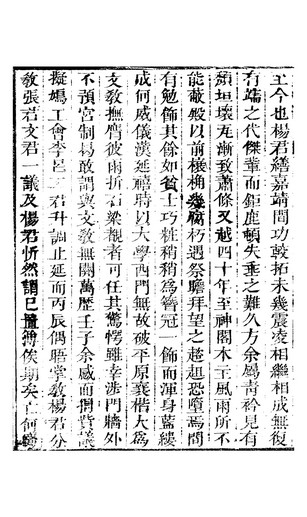 至今也楊君繕嘉靖間功敎拓未幾震凌相繼相成無復
有端之代傑畢而鉅鹿頓失垂之難久方余爲青衿見有
頽垣壞瓦漸致蕭條又越四十年至神閣本主風雨所不
能蔽殿以前榱桷幾腐朽遇祭瞻拜望之趑趄恐墮焉間
有勉飾其傺如貧士巧粧稍稍爲簪冠一飾而渾身藍縷
成何威儀漢延禧時以大學西門無故破平原襄楷大爲
文敎撫膺彼雨折石梁觀者可任其驚愕雖幸涉門牆外
不預宮制易敢謂與文敎無關萬歷壬子余感而獨貲議
擬媽工會李邑
君升調止延而丙辰偶晤掌敎楊君分
敎張君文君
議及楊君忻然謂已
俟期矣亡何